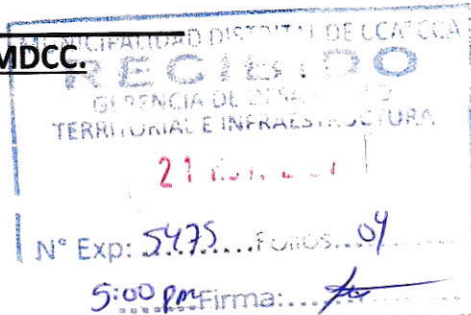 MDCC.
MUNICIPALIDAD DISTRITAL DE CCATCCA
RECIBIDO
GERENCIA DE
TERRITORIAL E INFRAESTRUCTURA
21
N° Exp: 5475 Folios 04
5:00 pm Firma: